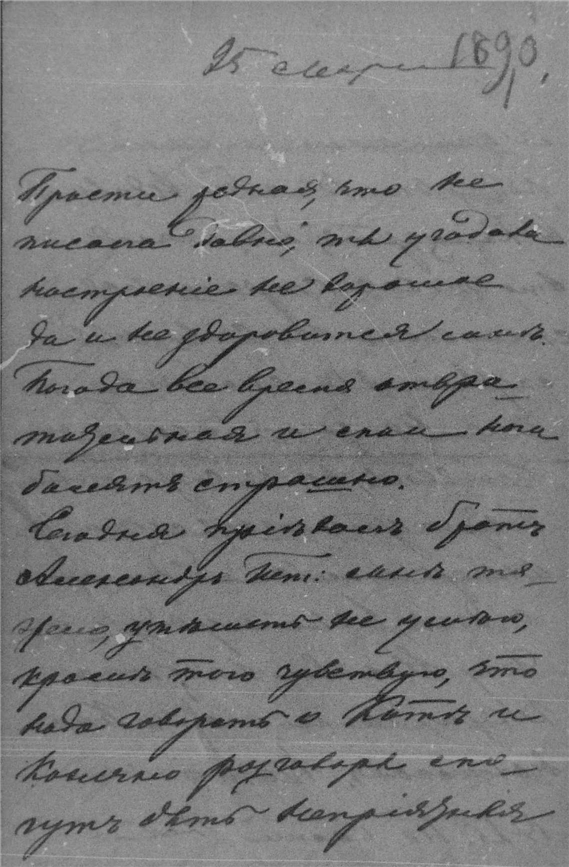 25 1890,
Прости родная, что не
писала давно, ты угадала
настроеніе не хорошое
да и не здоровится самъ.
Погода все время отвра-
тительная и мои ноги
балятъ страшно.
Сегодня пріѣхалъ братъ
Александръ Пет: самъ тя-
жело, утѣшать не умѣю,
кромѣ того чувствую, что
надо говорить о Катѣ и
конечно разговоръ
гутъ быть непріязнія